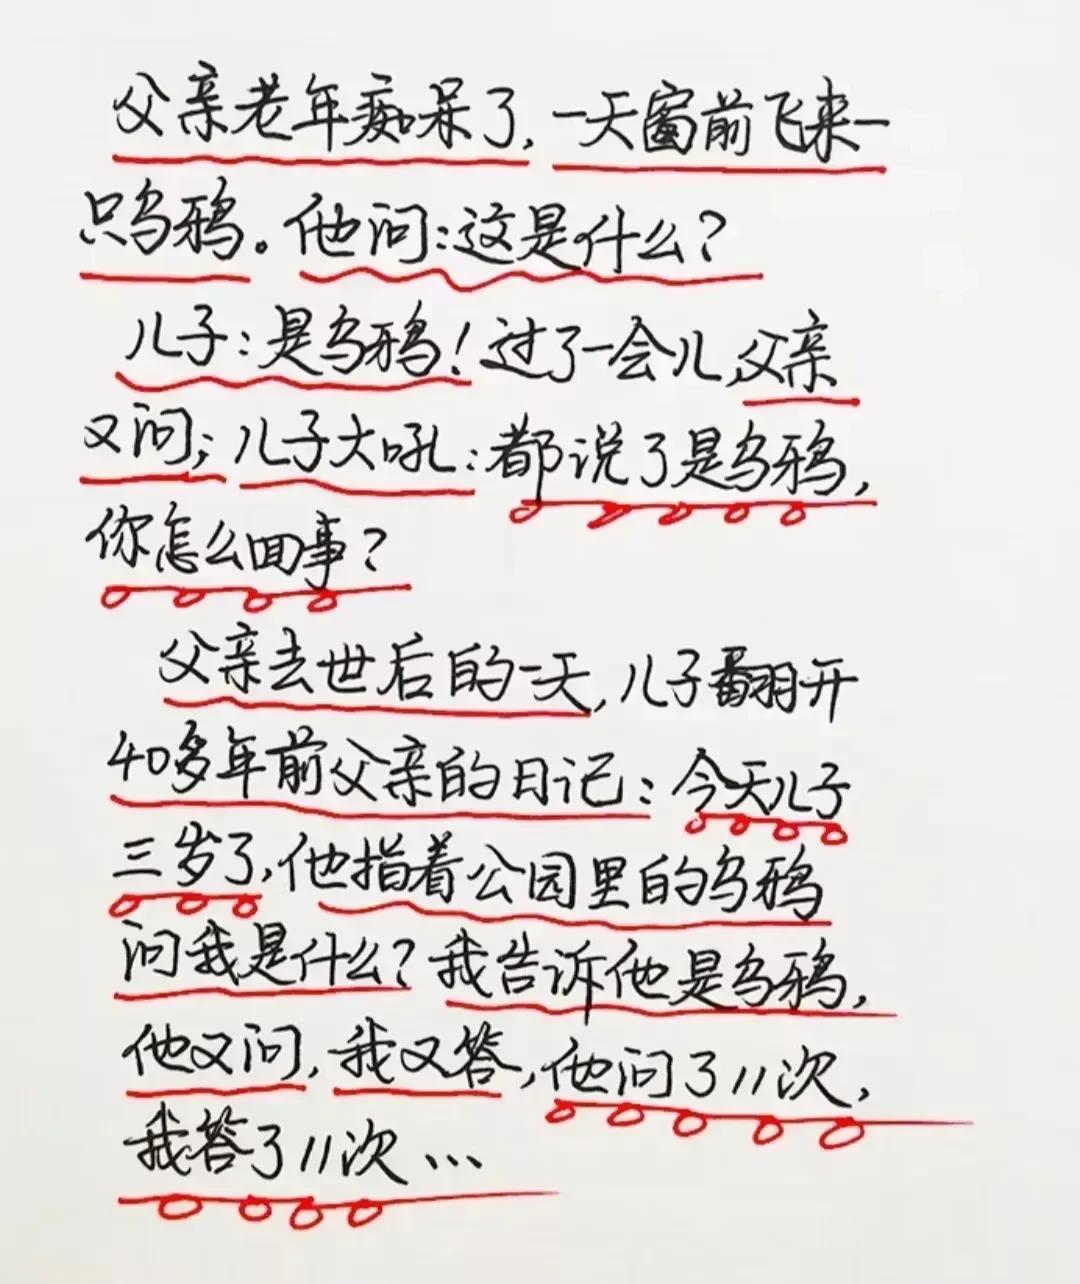 父亲老年痴呆了,一天窗前飞来一
只乌鸦。他问:这是什么?
儿子:是乌鸦!过了一会儿,父亲
又问;儿子大吼:都说了是乌鸦,
你怎么回事?
父亲去世后的一天,儿子翻开
40多年前父亲的日记:今天儿子
三岁了,他指着公园里的乌鸦
问我是什么?我告诉他是乌鸦,
他又问,我又答,他问了11次,
我答了11次...